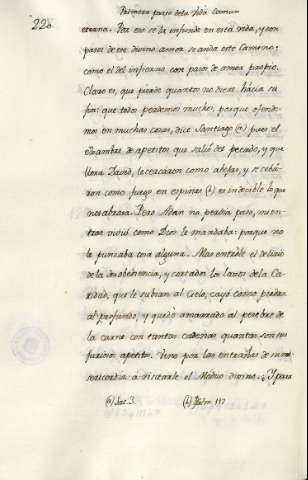 226
Primera parte de la Vida Comun
eterna. Por eso se la infunde en esta vida, y con
pasos de ese divino amor se anda este Camino:
como el del infierno con pasos de amor propio.
Claro es, que pierde quanto no diere hacia su
fin: que todos perdemos mucho, porque ofende-
mos en muchas cosas, dice Santiago (a) pues el
enxambre de apetitos que salió del pecado, y que
llora David, le cercaron como abejas, y se cebá-
ron como fuego en espinas (b) es indecible lo que
nos abrasa. Pero Adan no perdia paso, mien-
tras vivió como Dios le mandaba: porque no
le punzaba cosa alguna. Mas entróle el delirio
de la desobediencia, y cortados los lazos de la Ca-
ridad, que le subian al Cielo, cayó como piedra
al profundo, y quedó amarrado al pesebre de
la carne con tantas cadenas quantos son sus
furiosos apetitos. Vino por las entrañas de su mi-
sericordia á visitarle el Médico divino. Y para
(a) Jac. 3.
(b) Psalm. 117